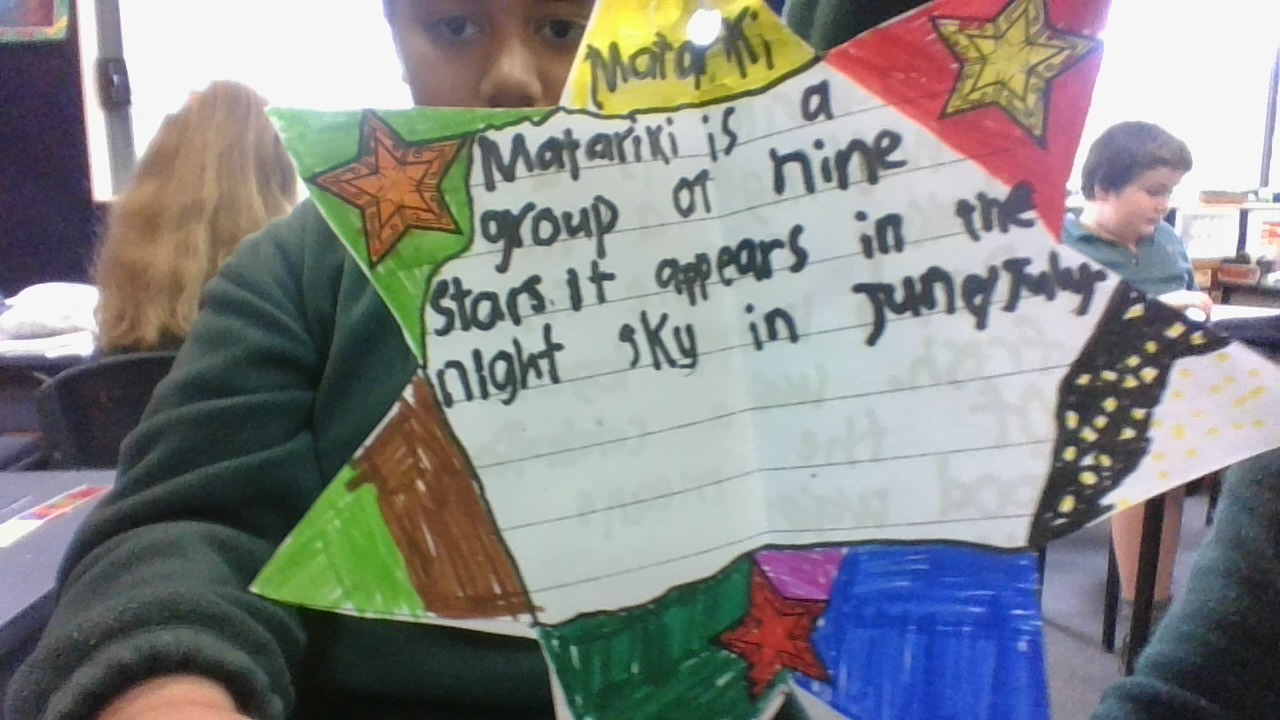 Matariki
Matariki is a
group of nine
stars. It appears in the
night sky in June/July